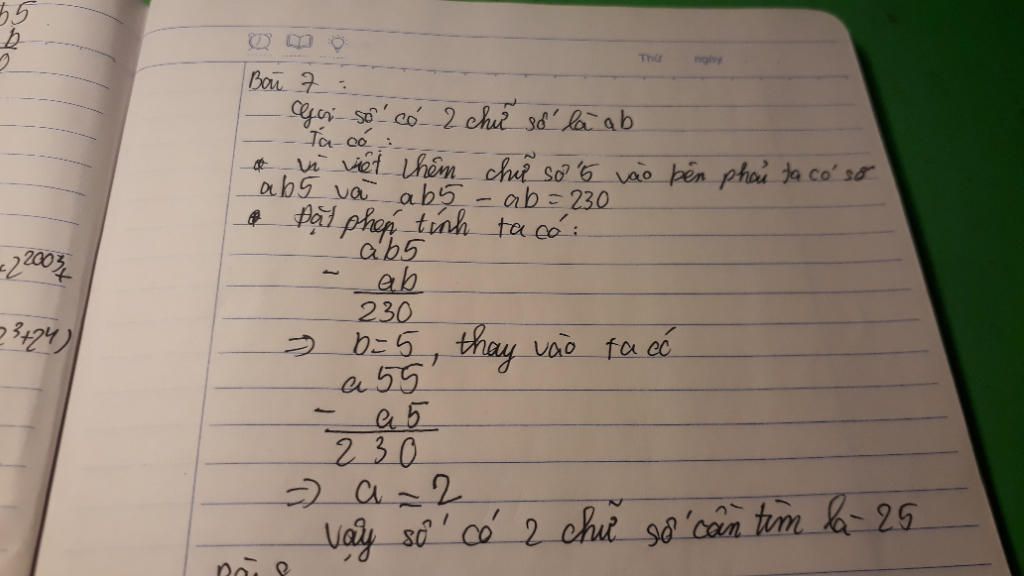 b5
b
0
+2^2003/4
2^3+2^4)
Thứ ngày
Bài 7 :
Gọi số có 2 chữ số là ab
Ta có :
* vì viết thêm chữ số 5 vào bên phải ta có số
ab5 và ab5 - ab = 230
* Đặt phép tính ta có :
ab5
- ab
230
=> b=5, thay vào ta có
a55
- a5
230
=> a = 2
Vậy số có 2 chữ số cần tìm là 25
Bài 8